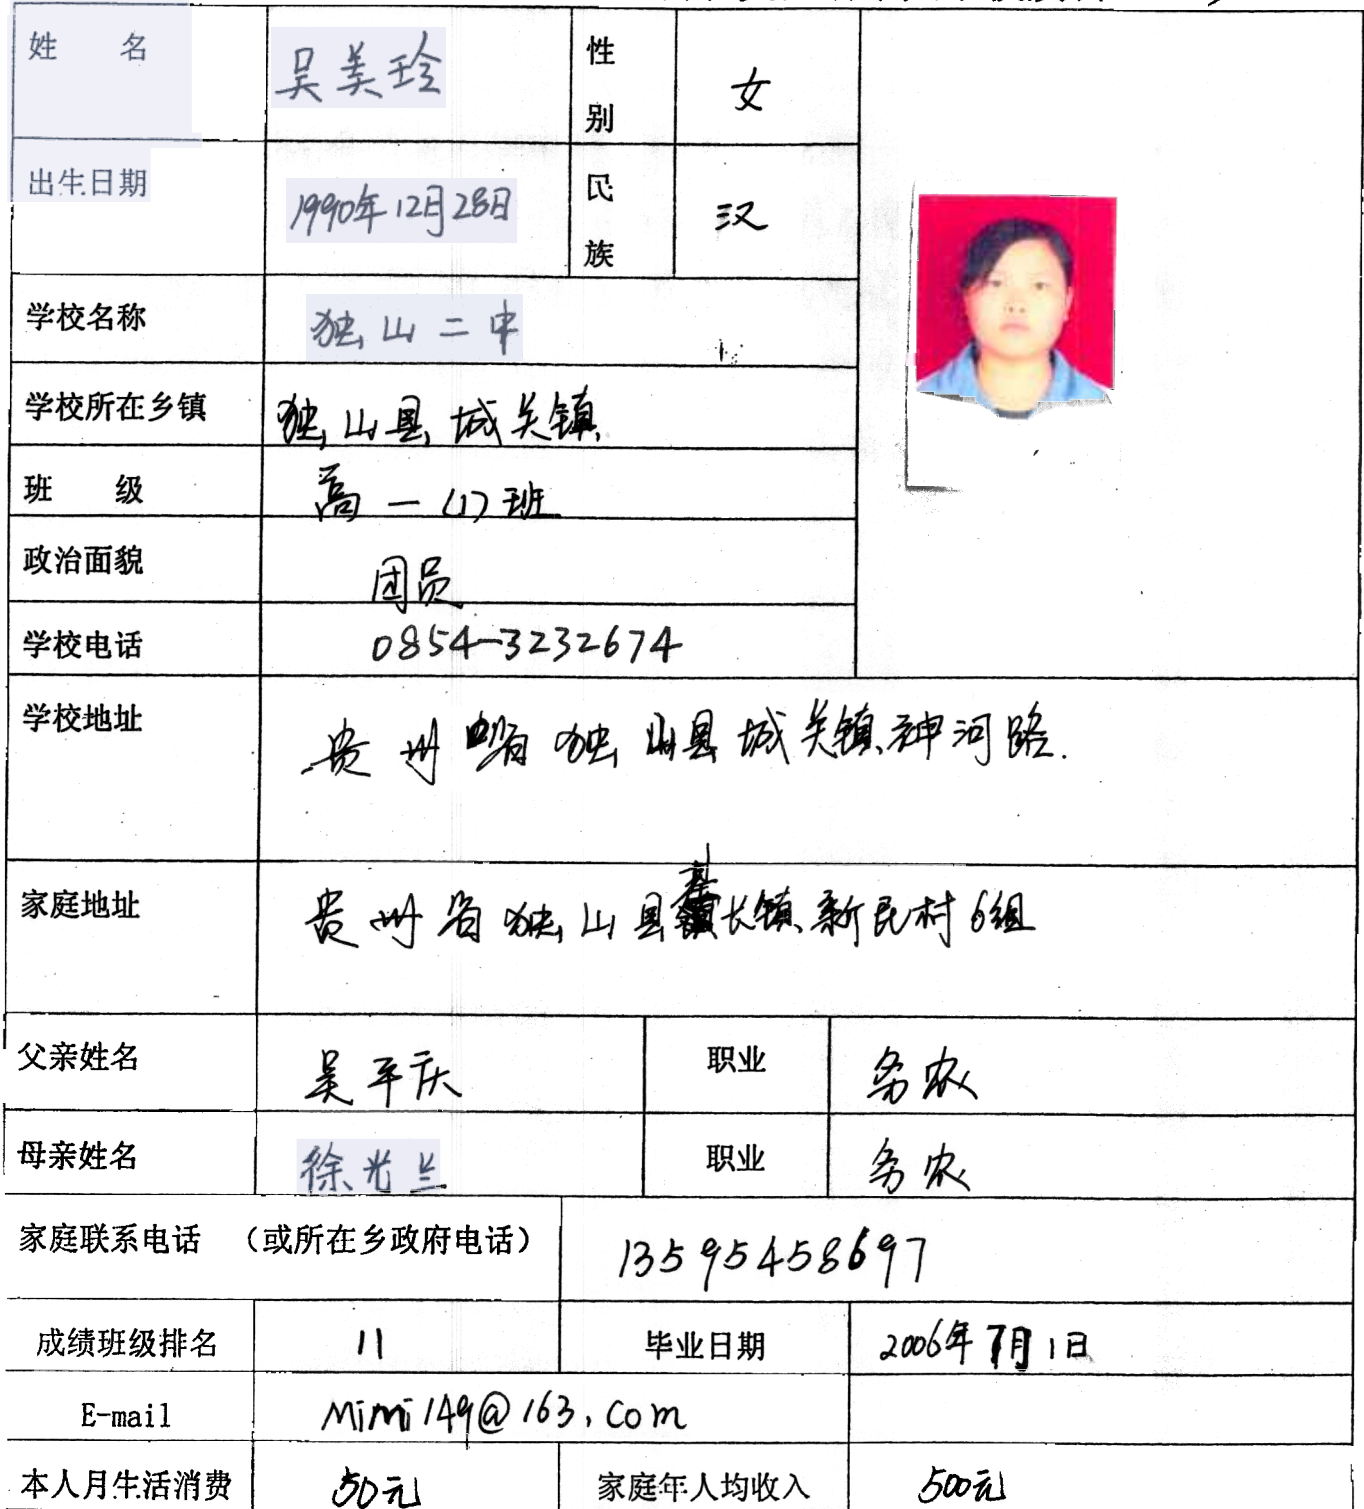 姓 名 吴美玲 性别 女
出生日期 1990年12月28日 民族 汉
学校名称 独山二中
学校所在乡镇 独山县城关镇
班 级 高一(1)班
政治面貌 团员
学校电话 0854-3232674
学校地址 贵州省独山县城关镇神河路.
家庭地址 贵州省独山县基长镇新民村6组
父亲姓名 吴平庆 职业 务农
母亲姓名 徐光兰 职业 务农
家庭联系电话 (或所在乡政府电话) 13595458697
成绩班级排名 11 毕业日期 2006年7月1日
E-mail Mimi149@163.com
本人月生活消费 50元 家庭年人均收入 500元